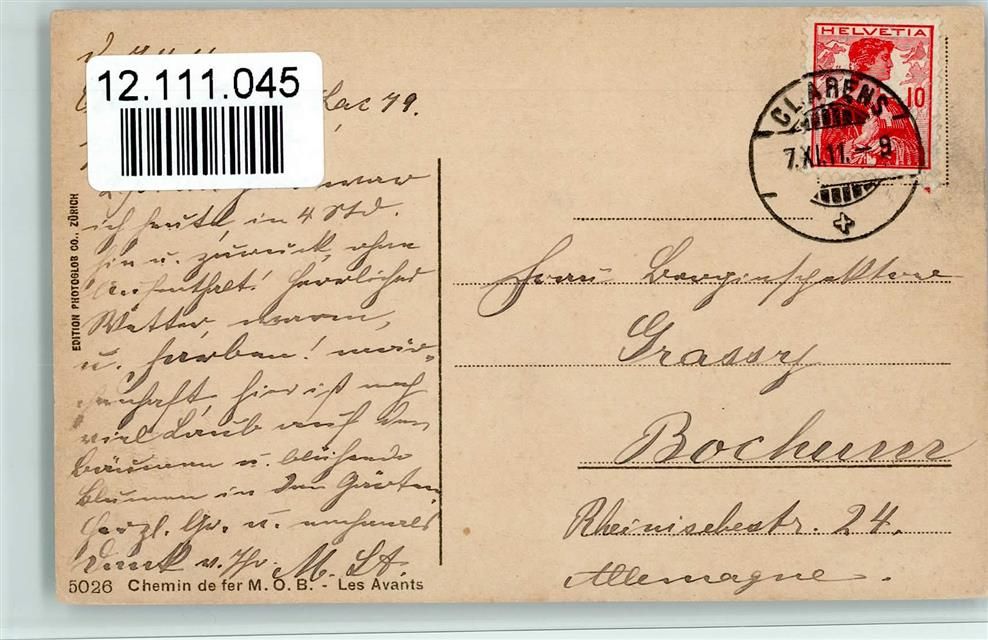 12.111.045
Lac 79.
war
ich heute, in 4 Std.
hin u. zurück, ohne
Aufenthalt! Herrliches
Wetter, warm,
u. Farben! mär-
chenhaft, hier ist noch
viel Laub auf den
Bäumen u. blühende
Blumen in den Gärten.
Herzl. Gr. u. nochmals
Dank v. Ihr. M. St.
EDITION PHOTOGLOB CO., ZÜRICH
5026 Chemin de fer M.O.B. - Les Avants
HELVETIA
10
CLARENS
7.XI.11.-9
Frau Berginspektor
Grassy
Bochum
Rheinischestr. 24.
Allemagne.